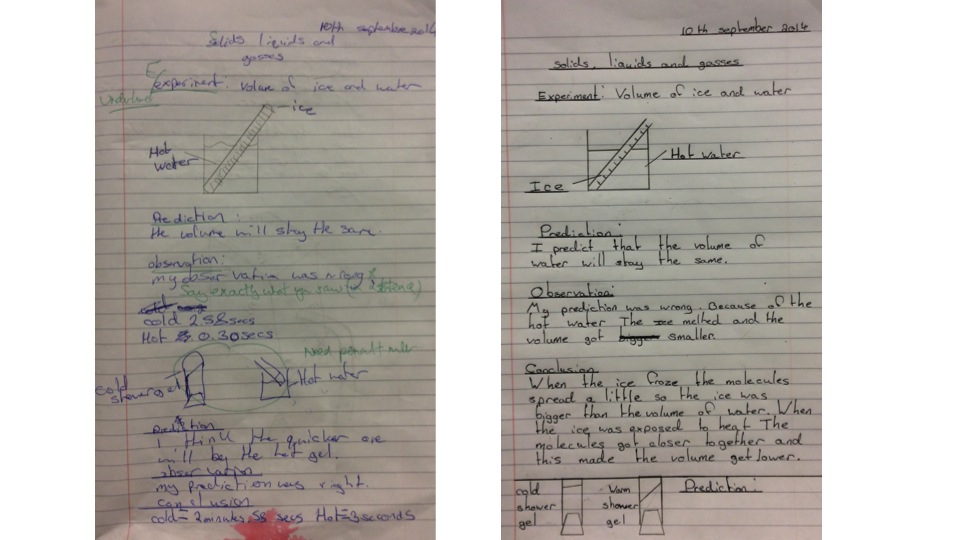 10th septembre 2014
Solids liquids and
gasses
Experiment: Volume of ice and water
Underline
ice
Hot
water
Prediction:
the volume will stay the same.
observation:
my obser vation was wrong
Say exactly what you saw (in a sentence)
cold 2.58secs
Hot 0.30secs
Need pencil + ruler
cold
shower gel
Hot water
Prediction
I think the quicker one
will be the hot gel.
obser vation
my prediction was right.
conclusion
cold = 2 minutes, 58 secs Hot = 3 seconds
10th september 2014
solids, liquids and gasses
Experiment: Volume of ice and water
Hot water
Ice
Prediction:
I predict that the volume of
water will stay the same.
Observation:
My prediction was wrong. Because of the
hot water The melted and the
volume got bigger smaller.
Conclusion
When the ice froze the molecules
spread a little so the ice was
bigger than the volume of water. When
the ice was exposed to heat The
molecules got closer together and
this made the volume get lower.
cold
shower
gel
Warm
shower
gel
Prediction: